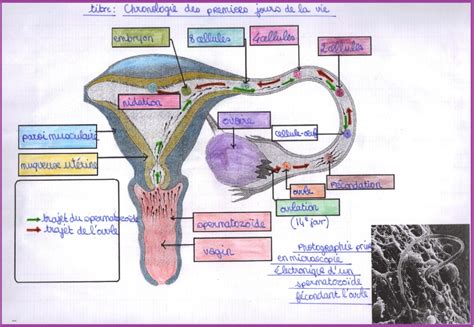 titre: Chronologie des premiers jours de la vie
embryon
8 cellules
4 cellules
2 cellules
nidation
ovaire
paroi musculaire
cellule-œuf
muqueuse utérine
ovule
fécondation
trajet du spermatozoïde
trajet de l'ovule
ovulation
(14e jour)
spermatozoïde
vagin
Photographie prise
en microscopie
Electronique d'un
spermatozoïde
fécondant l'ovule